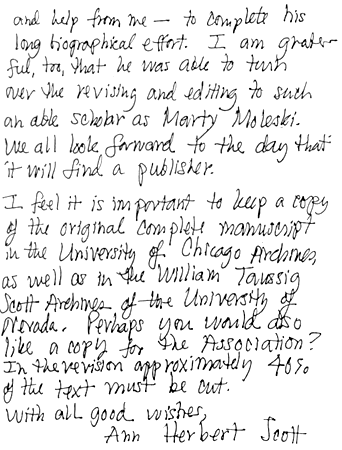 and help from me — to complete his
long biographical effort. I am grate-
ful, too, that he was able to turn
over the revising and editing to such
an able scholar as Marty Moleski.
We all look forward to the day that
it will find a publisher.
I feel it is important to keep a copy
of the original complete manuscript
in the University of Chicago Archives,
as well as in the William Taussig
Scott Archives of the University of
Nevada. Perhaps you would also
like a copy for the Association?
In the revision approximately 40%
of the text must be cut.
With all good wishes,
Ann Herbert Scott